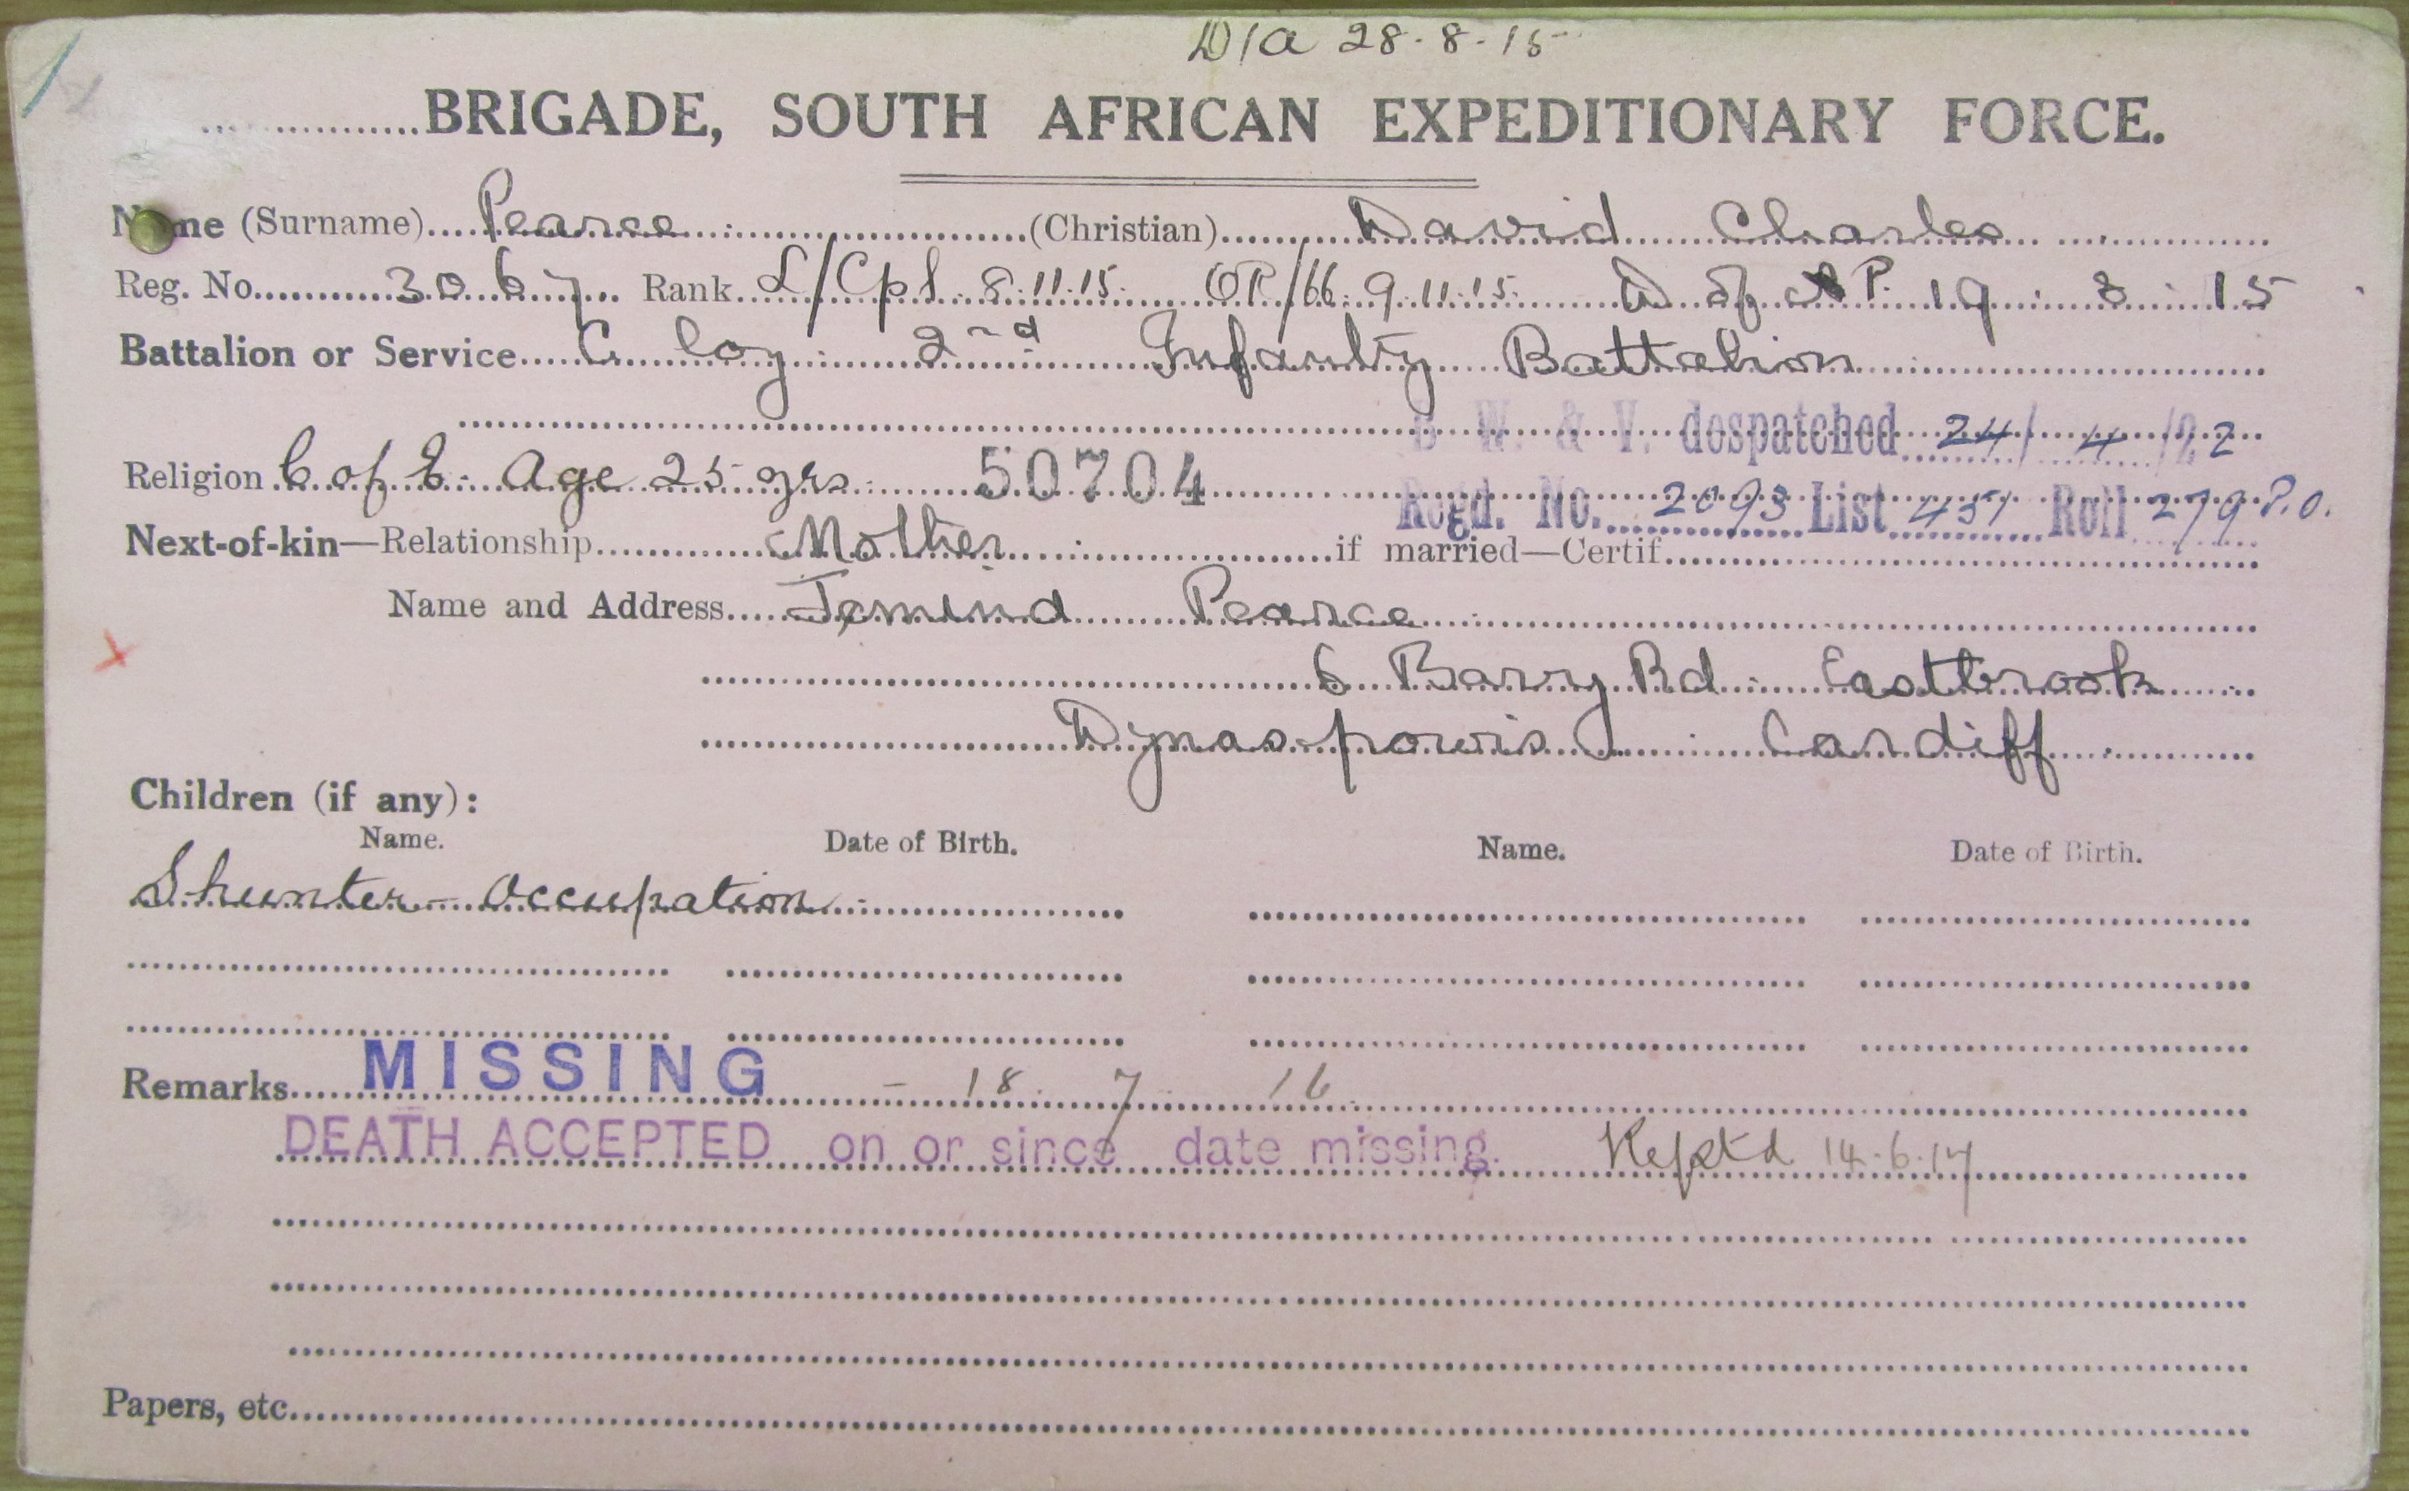 D/A 28.8.15
BRIGADE, SOUTH AFRICAN EXPEDITIONARY FORCE.
Name (Surname) Pearce (Christian) David Charles
Reg. No. 3067 Rank L/Cpl 8.11.15. OR/66. 9.11.15. D of P. 19. 8. 15
Battalion or Service C Coy 2nd Infantry Battalion
B W. & V. despatched 24/4/22
Religion C of E. Age 25 yrs. 50704
Regd. No. 2093 List 451 Roll 279 P.O.
Next-of-kin—Relationship Mother if married—Certif.
Name and Address Jemind Pearce
6 Barry Rd Eastbrook
Dynas powis Cardiff
Children (if any):
Name. Date of Birth. Name. Date of Birth.
Shunter - Occupation
Remarks MISSING - 18. 7 16
DEATH ACCEPTED on or since date missing. Reptd 14.6.17
Papers, etc.